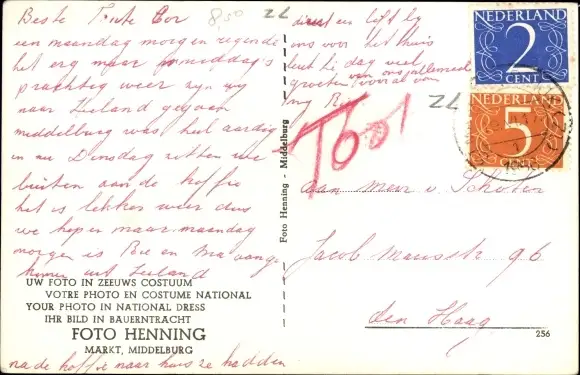 Beste Tante Cor
8,50
ZL
een maandag morgen regende
het erg maar smiddag's
prachtig weer zijn wij
naar Zeeland
middelburg was heel aardig
en nu Dinsdag zitten we
buiten aan de koffie
het is lekker weer dus
we hopen maar maandag
morgen is
uit Zeeland
na de koffie naar huis ze hadden
direct en lift bij
ons voor het thuis
dag veel
groeten vooral van
van ons allemaal
ZL
T60f
NEDERLAND
2
CENT
NEDERLAND
5
CENT
aan Meur v. Schoten
Jacob Mausstr 96
den Haag
Foto Henning - Middelburg
UW FOTO IN ZEEUWS COSTUUM
VOTRE PHOTO EN COSTUME NATIONAL
YOUR PHOTO IN NATIONAL DRESS
IHR BILD IN BAUERNTRACHT
FOTO HENNING
MARKT, MIDDELBURG
256